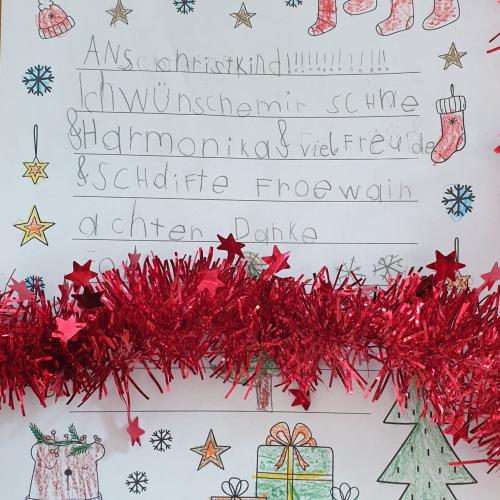 ANS christkind!!!!!!!!!!!!
Ich WÜNSCHE mir SCHNE
& Harmonika & viel Freude
& SCHdifte Froe wain
achten Danke